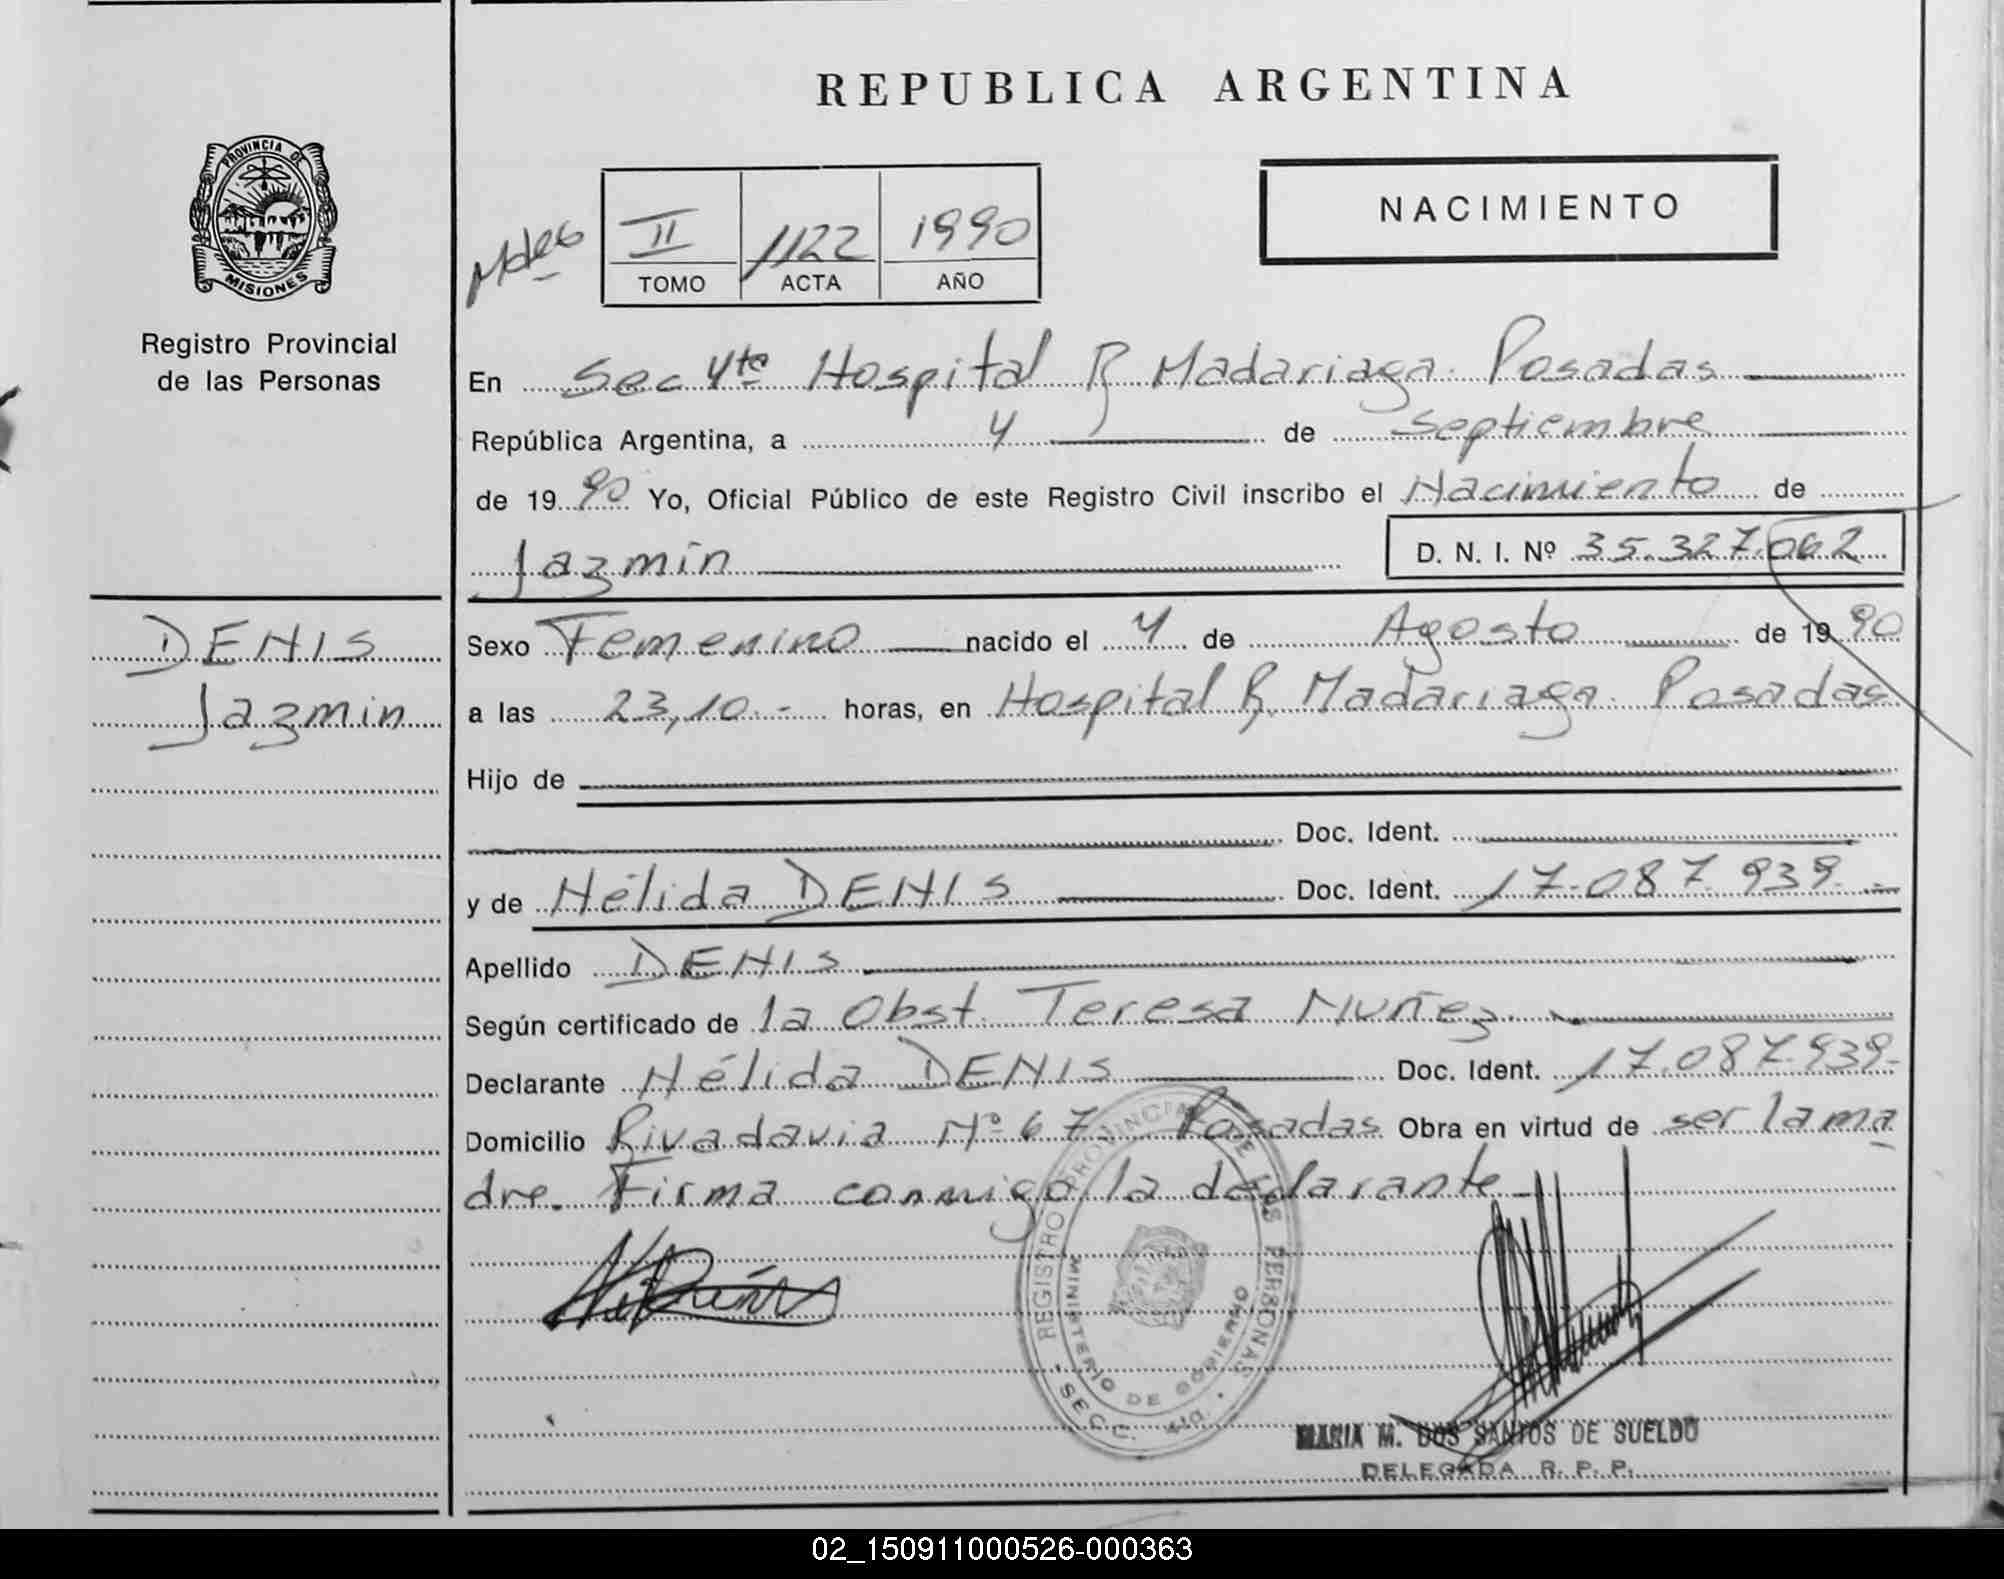 REPUBLICA ARGENTINA
PROVINCIA DE
MISIONES
Registro Provincial
de las Personas
II 1122 1990
TOMO ACTA AÑO
NACIMIENTO
En Sec 4ta Hospital R Madariaga. Posadas
República Argentina, a 4 de Septiembre
de 1990 Yo, Oficial Público de este Registro Civil inscribo el Nacimiento de
Jazmin D. N. I. Nº 35.327.062
DENIS
Jazmin
Sexo Femenino nacido el 4 de Agosto de 1990
a las 23,10.- horas, en Hospital R. Madariaga. Posadas
Hijo de
Doc. Ident.
y de Nélida DENIS Doc. Ident. 17.087.939.-
Apellido DENIS
Según certificado de la Obst. Teresa Nuñez.
Declarante Nélida DENIS Doc. Ident. 17.087.939-
Domicilio Rivadavia Nº 67. Posadas Obra en virtud de ser la ma
dre. Firma conmigo la declarante
REGISTRO PROVINCIAL DE LAS PERSONAS
MINISTERIO DE GOBIERNO
- SECC. 4ta. -
MARIA M. DOS SANTOS DE SUELDO
DELEGADA R. P. P.
02_150911000526-000363